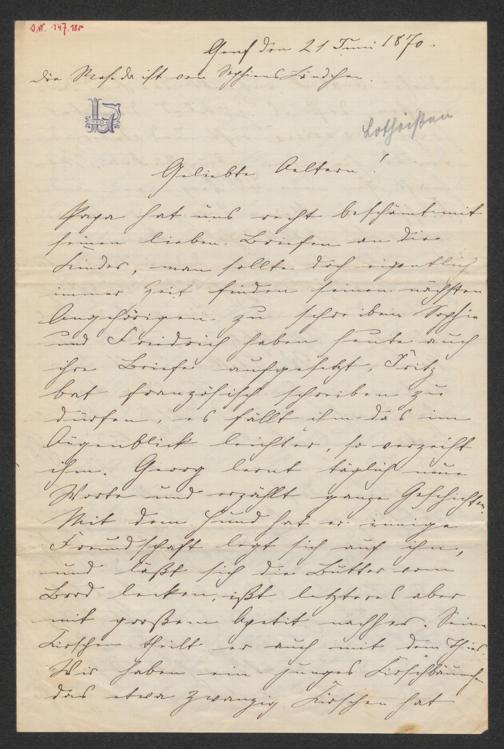 A.N. 147.188
Genf den 21 Juni 1870.
die Reseda ist von Sophiens Ländchen.
Geliebte Aeltern!
Papa hat uns recht beschämt mit
seinen lieben Briefen an die
Kinder, man sollte doch eigentlich
immer Zeit finden seinen nächsten
Angehörigen zu schreiben Sophie
und Friedrich haben heute auch
ihre Briefe aufgesetzt, Fritz
bat französisch schreiben zu
dürfen, es fällt ihm das im
Augenblick leichter, so verzeiht
ihm. Georg lernt täglich neue
Worte und erzählt ganze Geschichten.
Mit dem Hund hat er innige
Freundschaft legt sich auf ihn,
und läßt sich die Butter vom
Brod lecken, ißt letzteres aber
mit großem Apetit nachher. Seine
Kirschen theilt er auch mit dem Thier
Wir haben ein junges Kirschbäumchen
das etwa zwanzig Kirschen hat